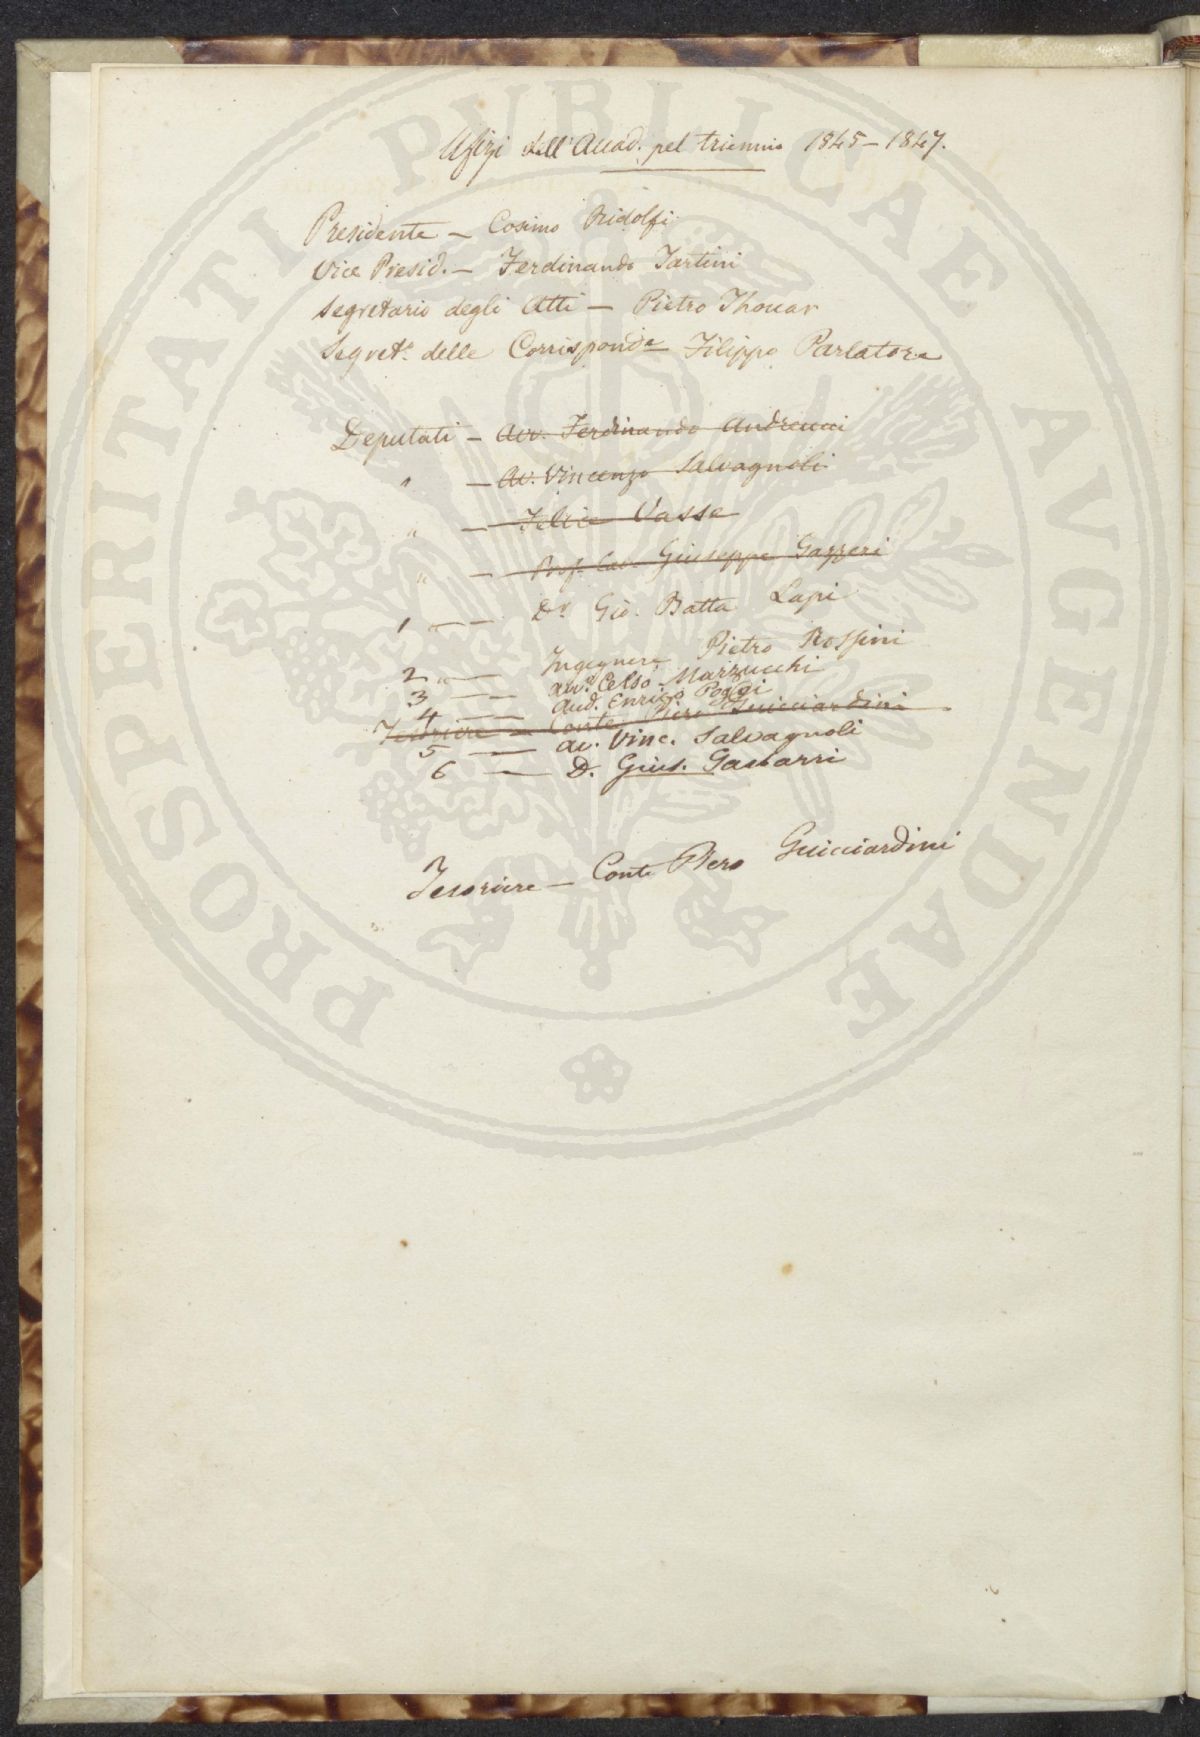 Ufizi dell'Accad. pel triennio 1845-1847.
Presidente - Cosimo Ridolfi
Vice Presid. - Ferdinando Tartini
Segretario degli Atti - Pietro Thouar
Segret.o delle Corrispond.e Filippo Parlatore
Deputati - Avv. Ferdinando Andreucci
" - Av. Vincenzo Salvagnoli
" - Felice Vasse
" - Prof. Cav. Giuseppe Gazzeri
1 " - Dr. Gio. Batta Lapi
2 " - Ingegnere Pietro Rossini
3 - Avv.o Celso Marzucchi
4 - Aud. Enrico Poggi
Tesoriere - Conte Piero Guicciardini
5 - Av. Vinc. Salvagnoli
6 - D. Gius. Gasbarri
Tesoriere - Conte Piero Guicciardini
PROSPERITATI PUBLICAE AVGENDAE